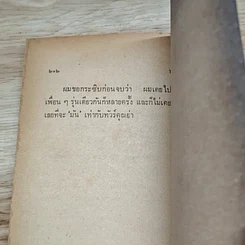 ๒๑๒
ผมขอกระซิบก่อนจบว่า ผมเคยไป
เพื่อน ๆ รุ่นเดียวกันก็หลายครั้ง และก็ไม่เคย
เลยที่จะ 'มัน' เท่ากับทัวร์คุณย่า